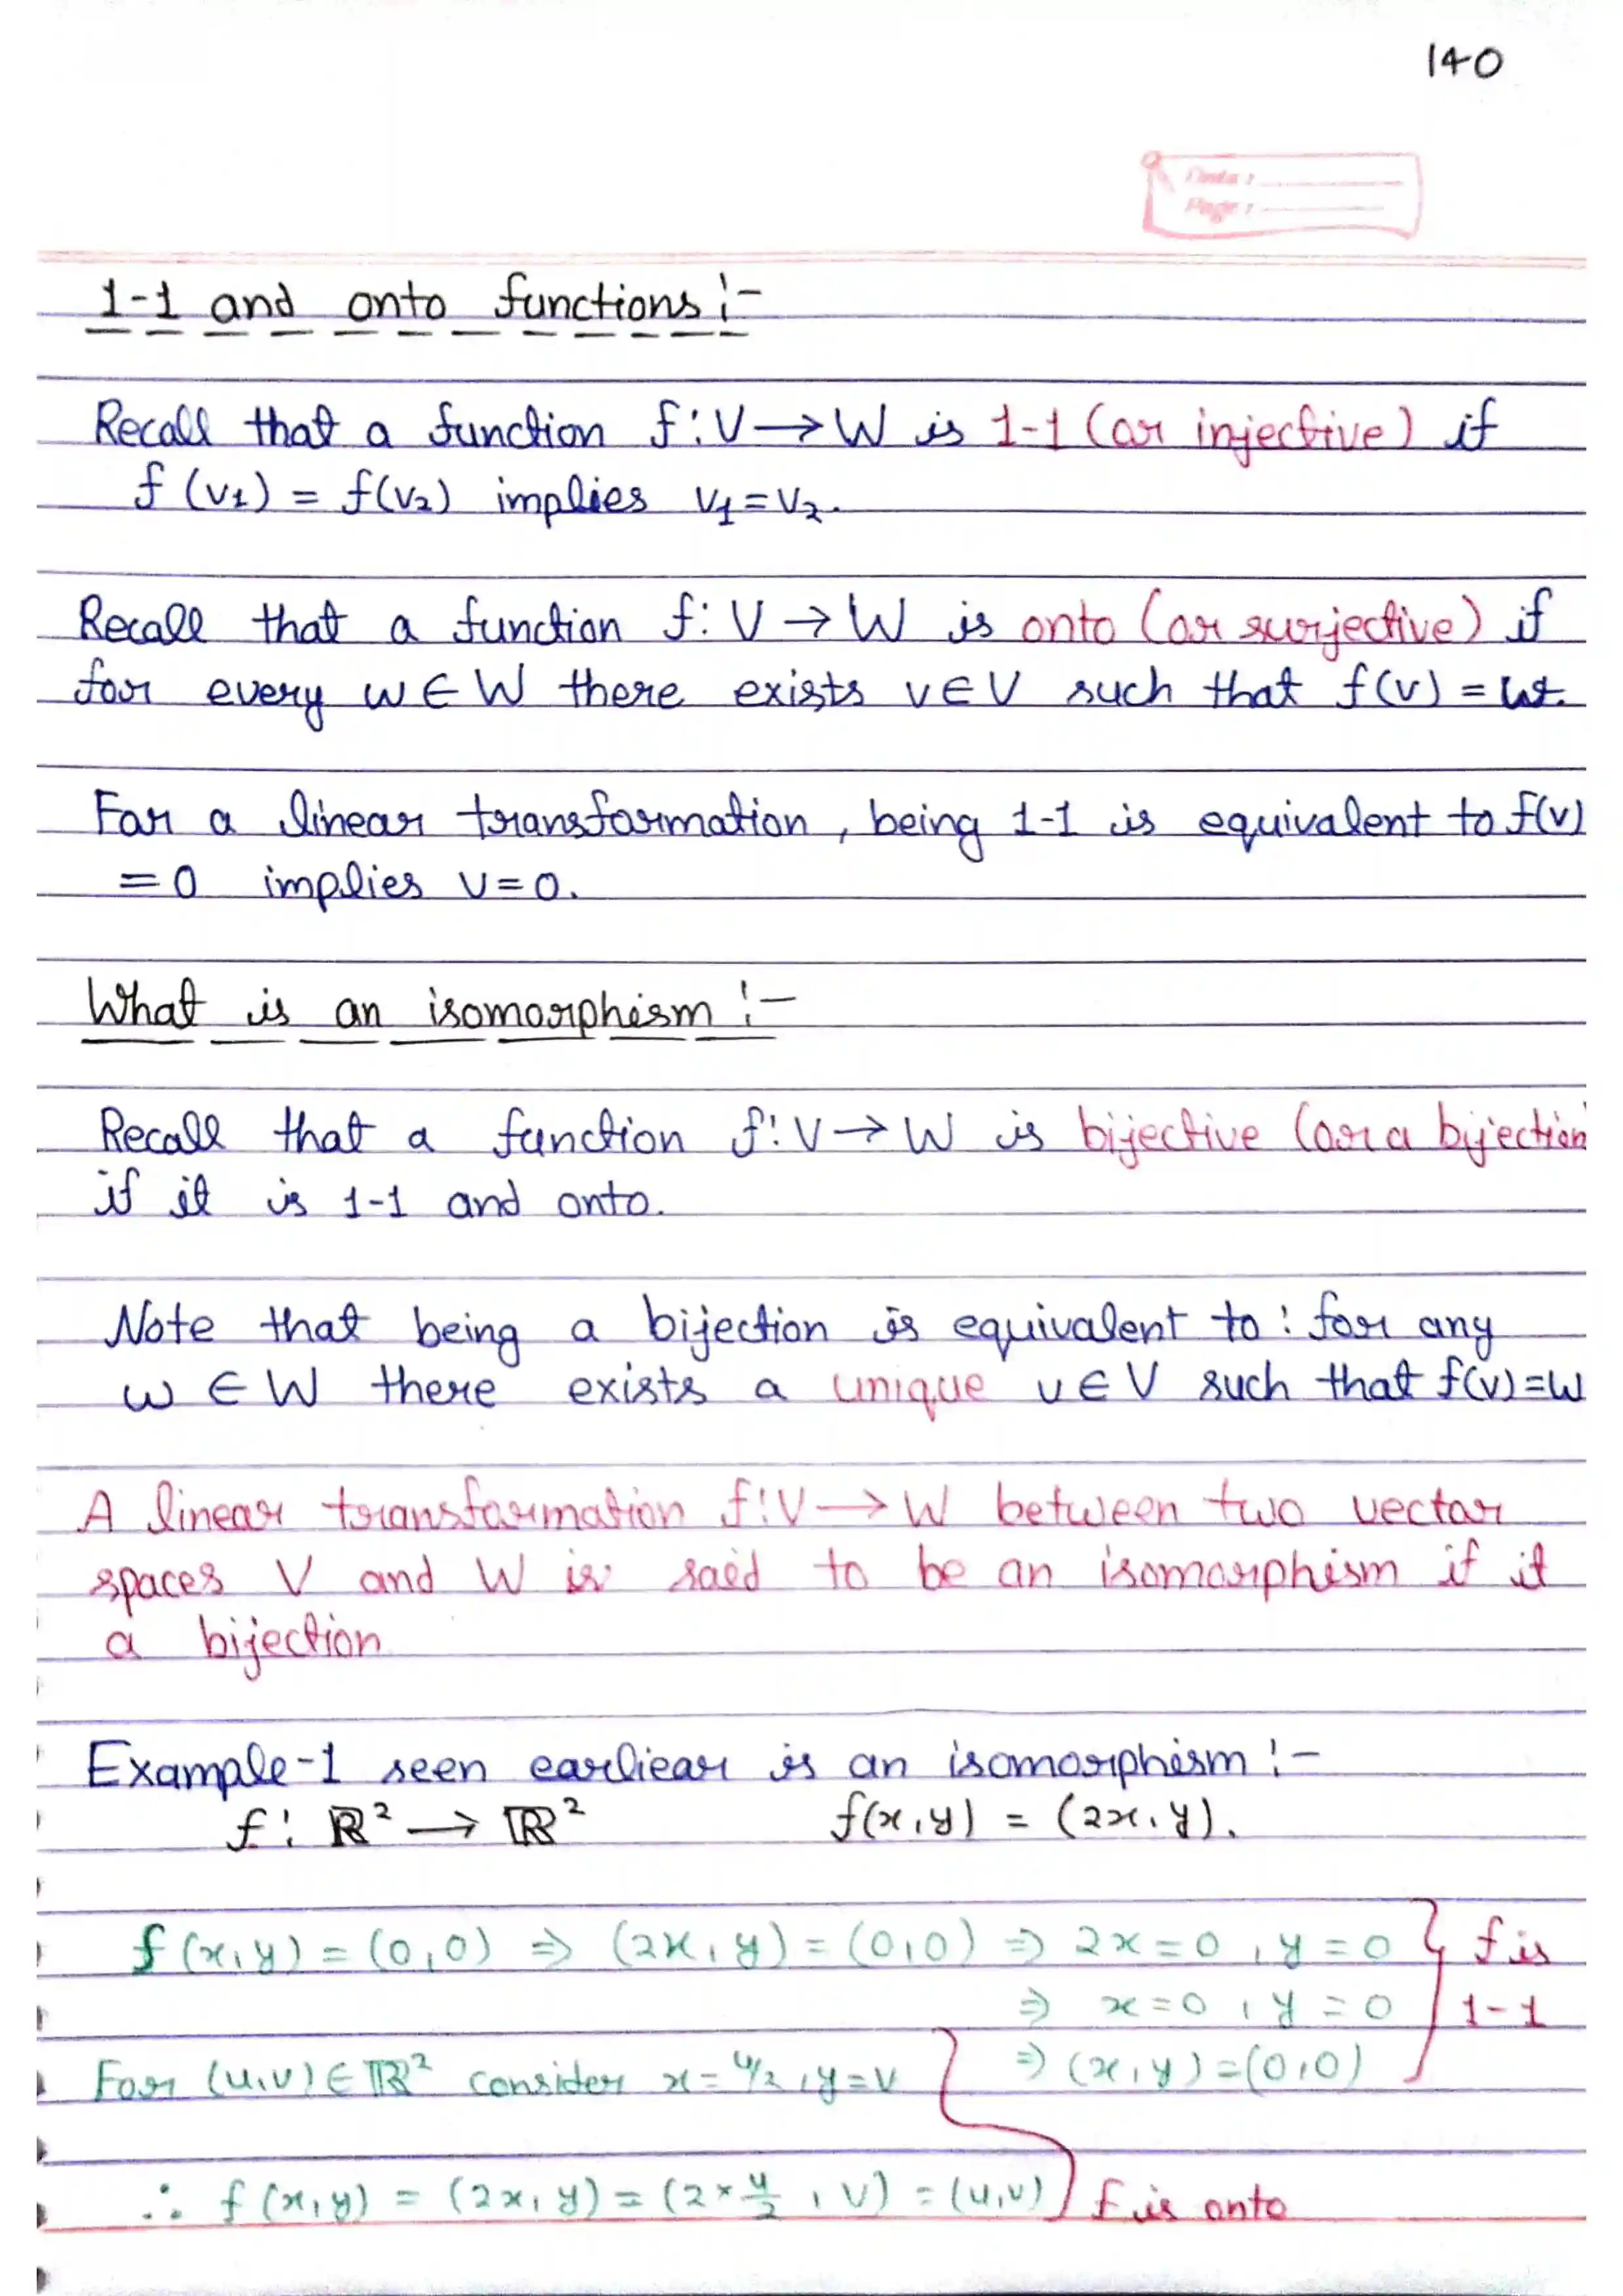 140
Date :
Page :
1-1 and onto functions :-
Recall that a function f: V → W is 1-1 (or injective) if
f (v₁) = f(v₂) implies v₁ = v₂.
Recall that a function f: V → W is onto (or surjective) if
for every w ∈ W there exists v ∈ V such that f(v) = w.
For a linear transformation, being 1-1 is equivalent to f(v)
= 0 implies v = 0.
What is an isomorphism :-
Recall that a function f: V → W is bijective (or a bijection
if it is 1-1 and onto.
Note that being a bijection is equivalent to : for any
w ∈ W there exists a unique v ∈ V such that f(v) = w
A linear transformation f: V → W between two vector
spaces V and W is said to be an isomorphism if it
a bijection
Example-1 seen earliear is an isomorphism :-
f : ℝ² → ℝ² f(x,y) = (2x, y).
f (x,y) = (0,0) ⇒ (2x, y) = (0,0) ⇒ 2x = 0 , y = 0 } f is
⇒ x = 0 , y = 0 1-1
For (u,v) ∈ ℝ² consider x = u/2 , y = v ⇒ (x,y) = (0,0)
∴ f (x,y) = (2x, y) = (2 × u/2 , v) = (u,v) } f is onto